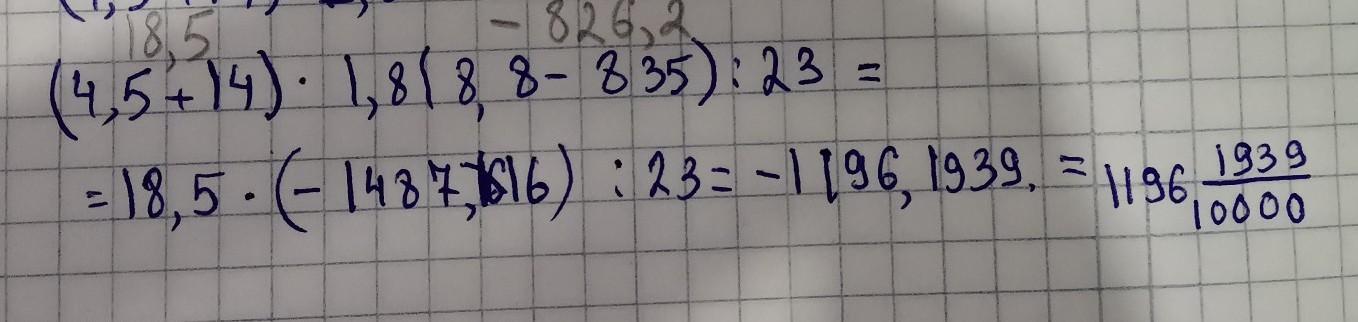 18,5 - 826,2
(4,5+14) · 1,8(8,8-835):23 =
=18,5·(-1487,1616):23=-1196,1939.=1196 1939/10000